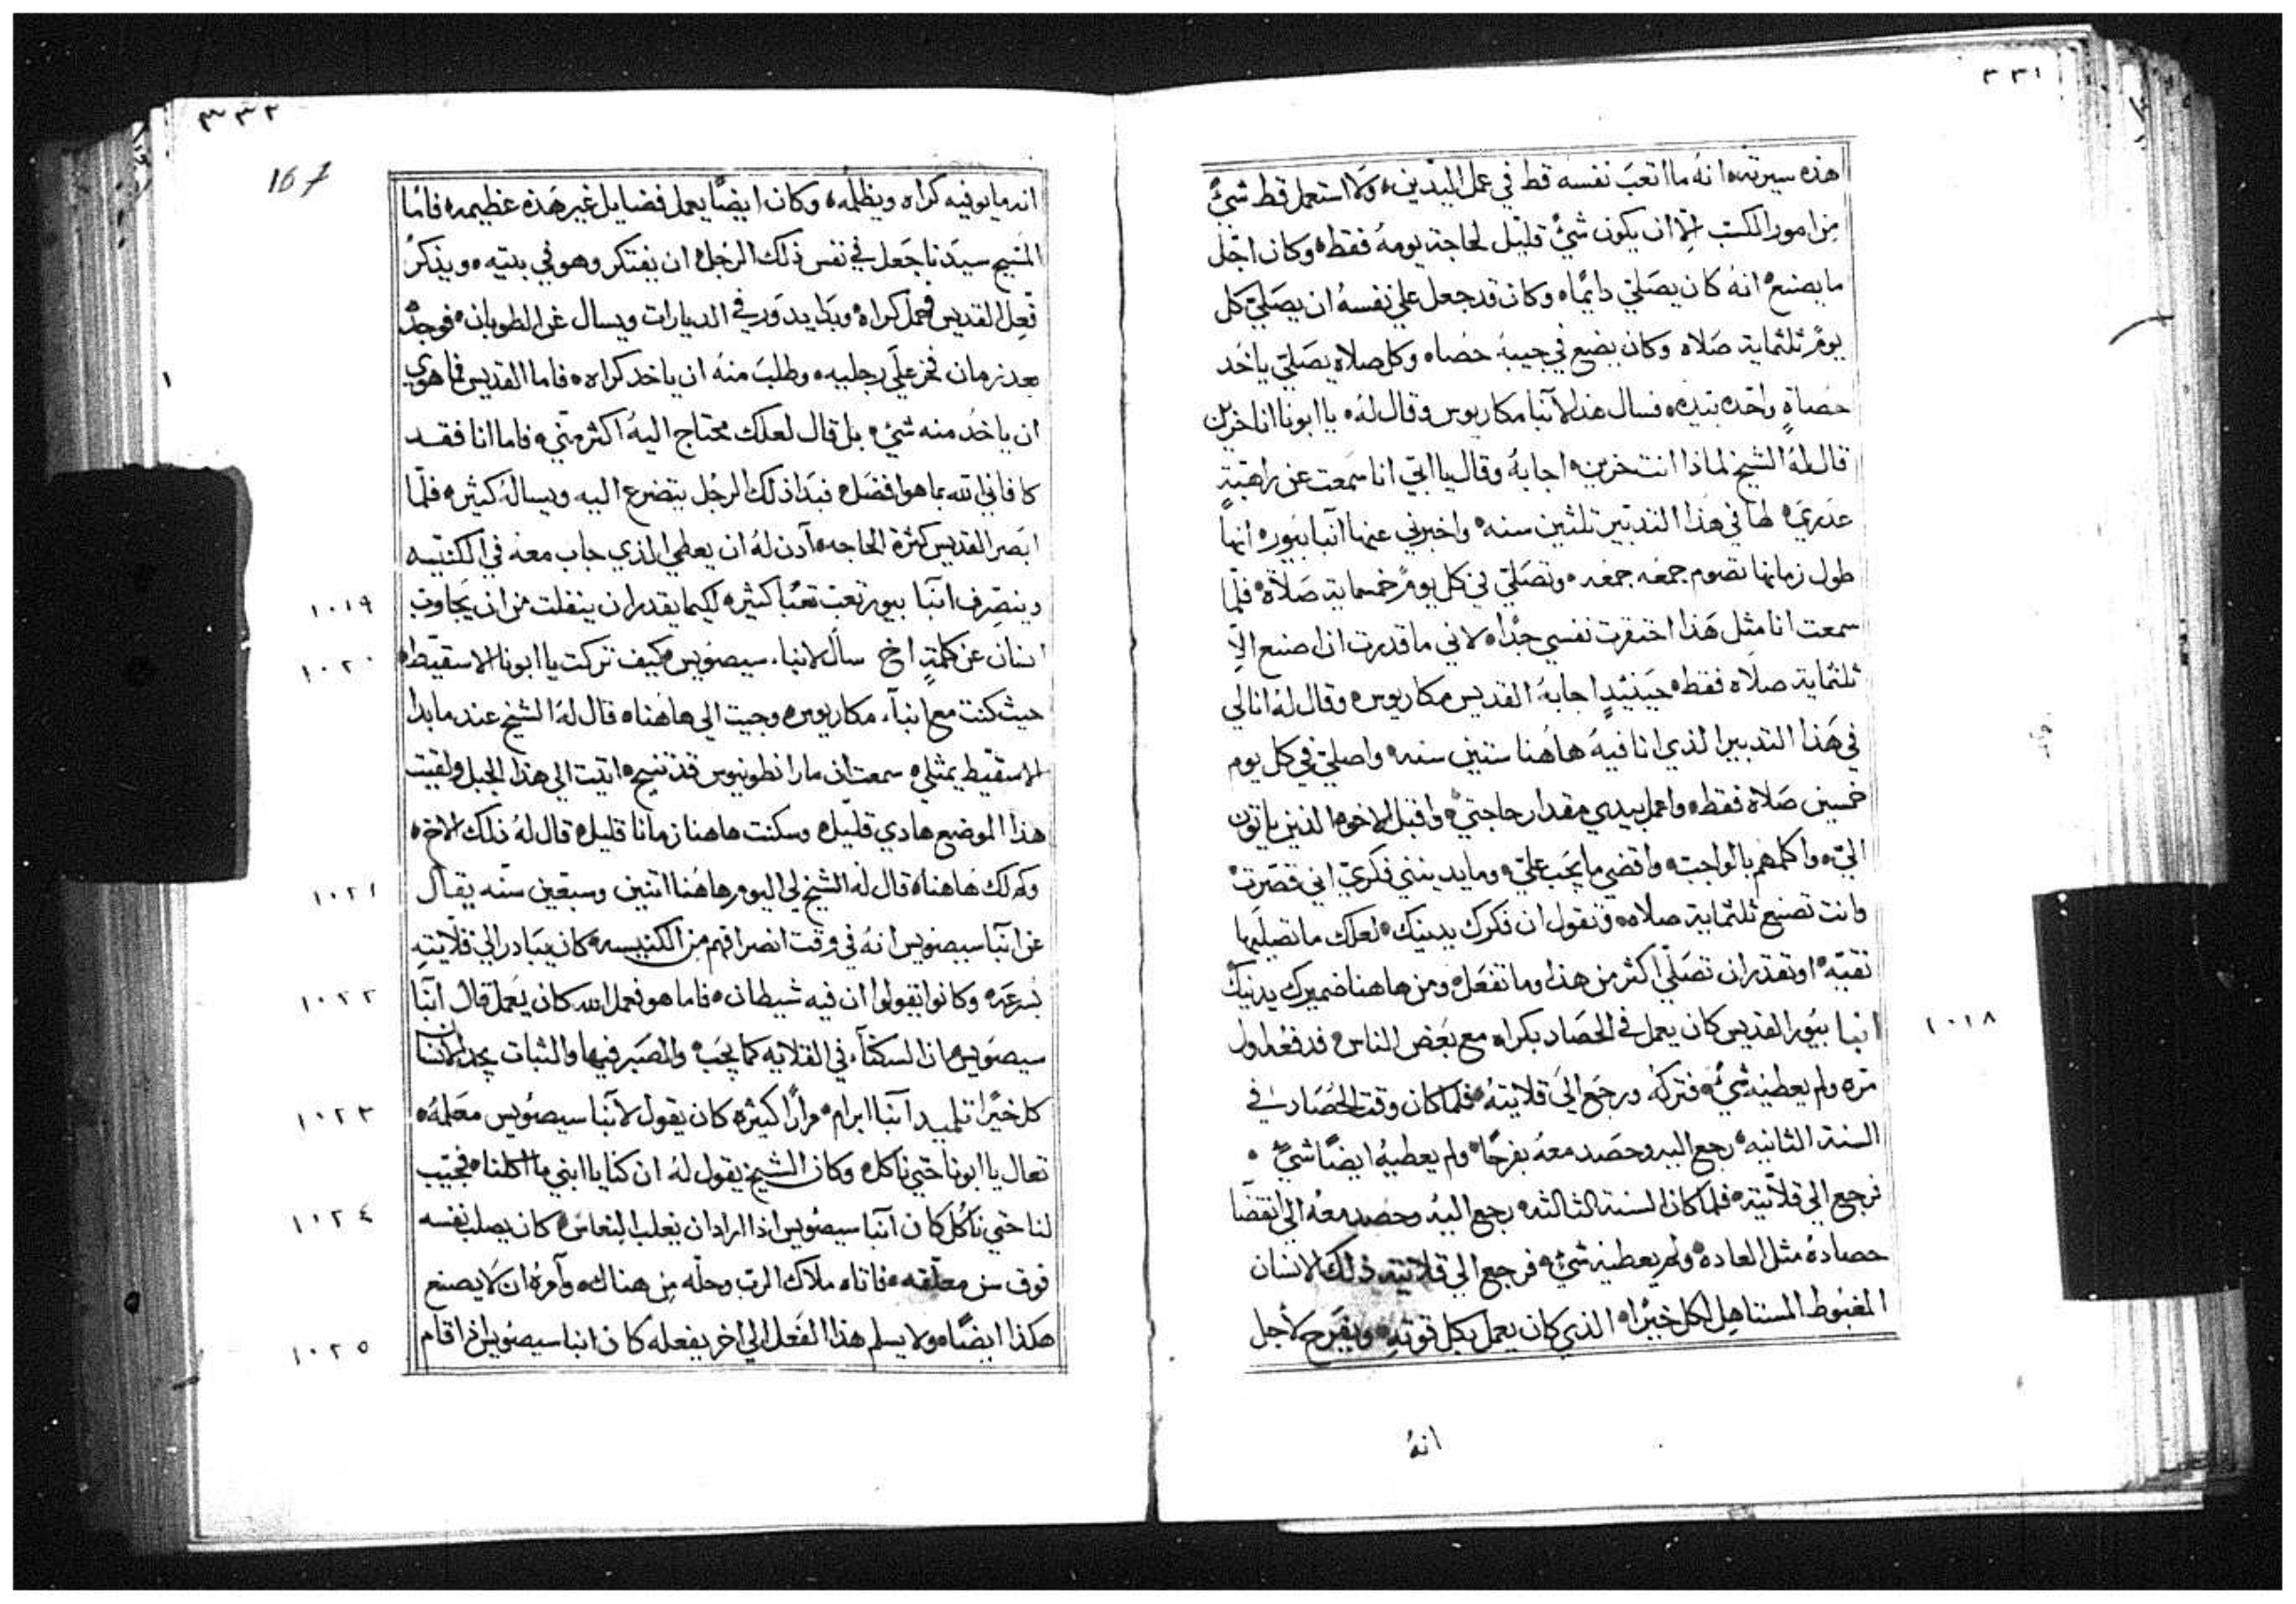 ٣٣١
هذه سيرته انهُ ما اتعبَ نفسه قط في عمل اليدين ولا استعمل قط شيً
مِن امور المكسَب إلّا ان يكون شيً قليل لحاجة يومهُ فقط وكان اجّل
ما يصنع انهُ كان يصَلي دايمًا وكان قد جعل علي نفسهُ ان يصَلي كل
يومً ثلثماية صَلاه وكان يضع في جيبهُ حصُاه وكل صلاه يصَلي ياخُد
حصَاةٍ واحده بيده فسال هذا لآنبا مكاريوس وقال لهُ يا ابونا انا حزين
قال لهُ الشيخ لماذا انت حزين اجابهُ وقال يا ابي انا سَمعت عن راهبةٍ
عدري لها في هذا التدبير تلثين سنه واخبرني عنها آنبا بيور انها
طول زمانها تصوم جمعه جمعه وتصَلي في كل يومً خمسماية صَلاة فلما
سمعت انا مثِل هَذا احتقرت نفسي جدًا لاني ما قدرت ان اصنع الا
ثلثماية صلاه فقط حينيدٍ اجابهُ القديس مكاريوس وقال لهُ انا لي
في هَذا التدبير الذي انا فيهُ هاهُنا ستين سنه واصلي في كل يوم
خمسين صَلاة فقط واعمل بيدي مقدار حاجتي واقبل الاخوه الذين ياتون
اليّ واكلمهم بالواجب واقضي ما يجَب عليّ وما يدينني فكري اني قصّرت
وانت تصنع ثلثماية صلاه وتقول ان فكرك يدينك لعلك ما تصليها
نقيّه او تقدر ان تصَلي اكثر من هذا وما تفعَل ومن هاهنا ضميرك يدينك
١٠١٨
انبا بيَور القديس كان يعمل في الحصَاد بكراه مع بَعض الناس فدفعُه اول
مره ولم يعطيه شيً فتركهُ ورجَع الي قلايتهُ فلما كان وقت الحصُاد في
السنة الثانيه رجع اليه وحصَد معهُ بفرحًا ولم يعطيهُ ايضًا شيً
فرجع الي قلّايته فلما كان السنة الثالثه رجع اليهُ وحصُد معهُ الي انقضآ
حصادهُ مثل العاده ولم يعطيه شيً فرجع الي قلايته ذلك الانسان
المغبُوط المستاهل لكل خيرًا الذي كان يعمل بكل قوته ويفَرح لأجل
انهُ
٣٣٢
167
انه ما يوفيه كراه ويظلمُه وكان ايضًا يعمل فضايل غير هَذه عظيمه فامًا
المَسيح سيَدنا جَعل في نفس ذلك الرجل ان يفتكر وهو في بيته ويذكرُ
فعِل القديس فحمل كراه وبَدا يدوَر في الديارات ويسال عن الطوبان فوجدهُ
بعد زمان فخر علَي رجليه وطلبَ منهُ ان ياخد كراه فاما القديس فما هوي
ان ياخُد منه شيً بل قال لعلك محتاج اليهُ اكثر منّي فاما انا فقد
كافاني الله بما هو افضَل فبَدا ذلك الرجُل يتضرع اليه ويسالهُ كثيره فلمّا
ابصَر القديس كثرة لحاجه آدن لهُ ان يعطي الذي جاب معه في الكنيسه
١٠١٩
وينصِرف انَبا بيور تعبَ تعبًا كثيره لكيما يقدر ان ينفلت من ان يَجاوب
١٠٢٠
انسان عن كلمةٍ اخ سأل لانبا سيصويس كيف تركت يا ابونا الاسقيط
حيث كنت مع انبآ مكاريوس وجيت الي هاهُناه قال لهُ الشيخ عند ما بدا
الاسقيط يمتلي سمعت ان مار انطونيوس قد تنيح اتيت الي هذا الجبل ولقيت
هذا الموضع هادي قليل وسكنت هاهنا زمانا قليل قال لهُ ذلك الاخ
١٠٢١
وكم لك هَاهناه قال له الشيخ لي اليوم هاهُنا اتنين وسبَعين سنّه يقال
عن انبَا سيصويس انهُ في وقت انصرافهم من الكنيسه كان يبَادر الي قلايته
١٠٢٢
بسُرعَه وكانوا يقولوا ان فيه شيطان فاما هو فعمل الله كان يَعمل قال آنبا
سيصَويس ان السكنآ في القلايه كما يجَب والصَبر فيها والثبات يجد الانسان
١٠٢٣
كل خيرًا تلميد آنبا ابرام مرارًا كثيره كان يقول لآنبا سيصُويس معَلمهُ
تعال يا ابونا حَتي ناكل وكان الشيخ يقول لهُ ان كنا يا ابني ما اكلنا فجيب
١٠٢٤
لنا حتي نآكُل كان آنبا سيصُويس اذا اراد ان يَغلب النعاسَ كان يصلب نفسه
فوق سن معلّقه فاتاه ملاك الرب وحلّه مِن هناك وآمرهُ ان لا يصنع
١٠٢٥
هكذا ايضًا ولا يسلم هذا الفَعل الي اخر يفعله كان انبا سيصويس اذا قام